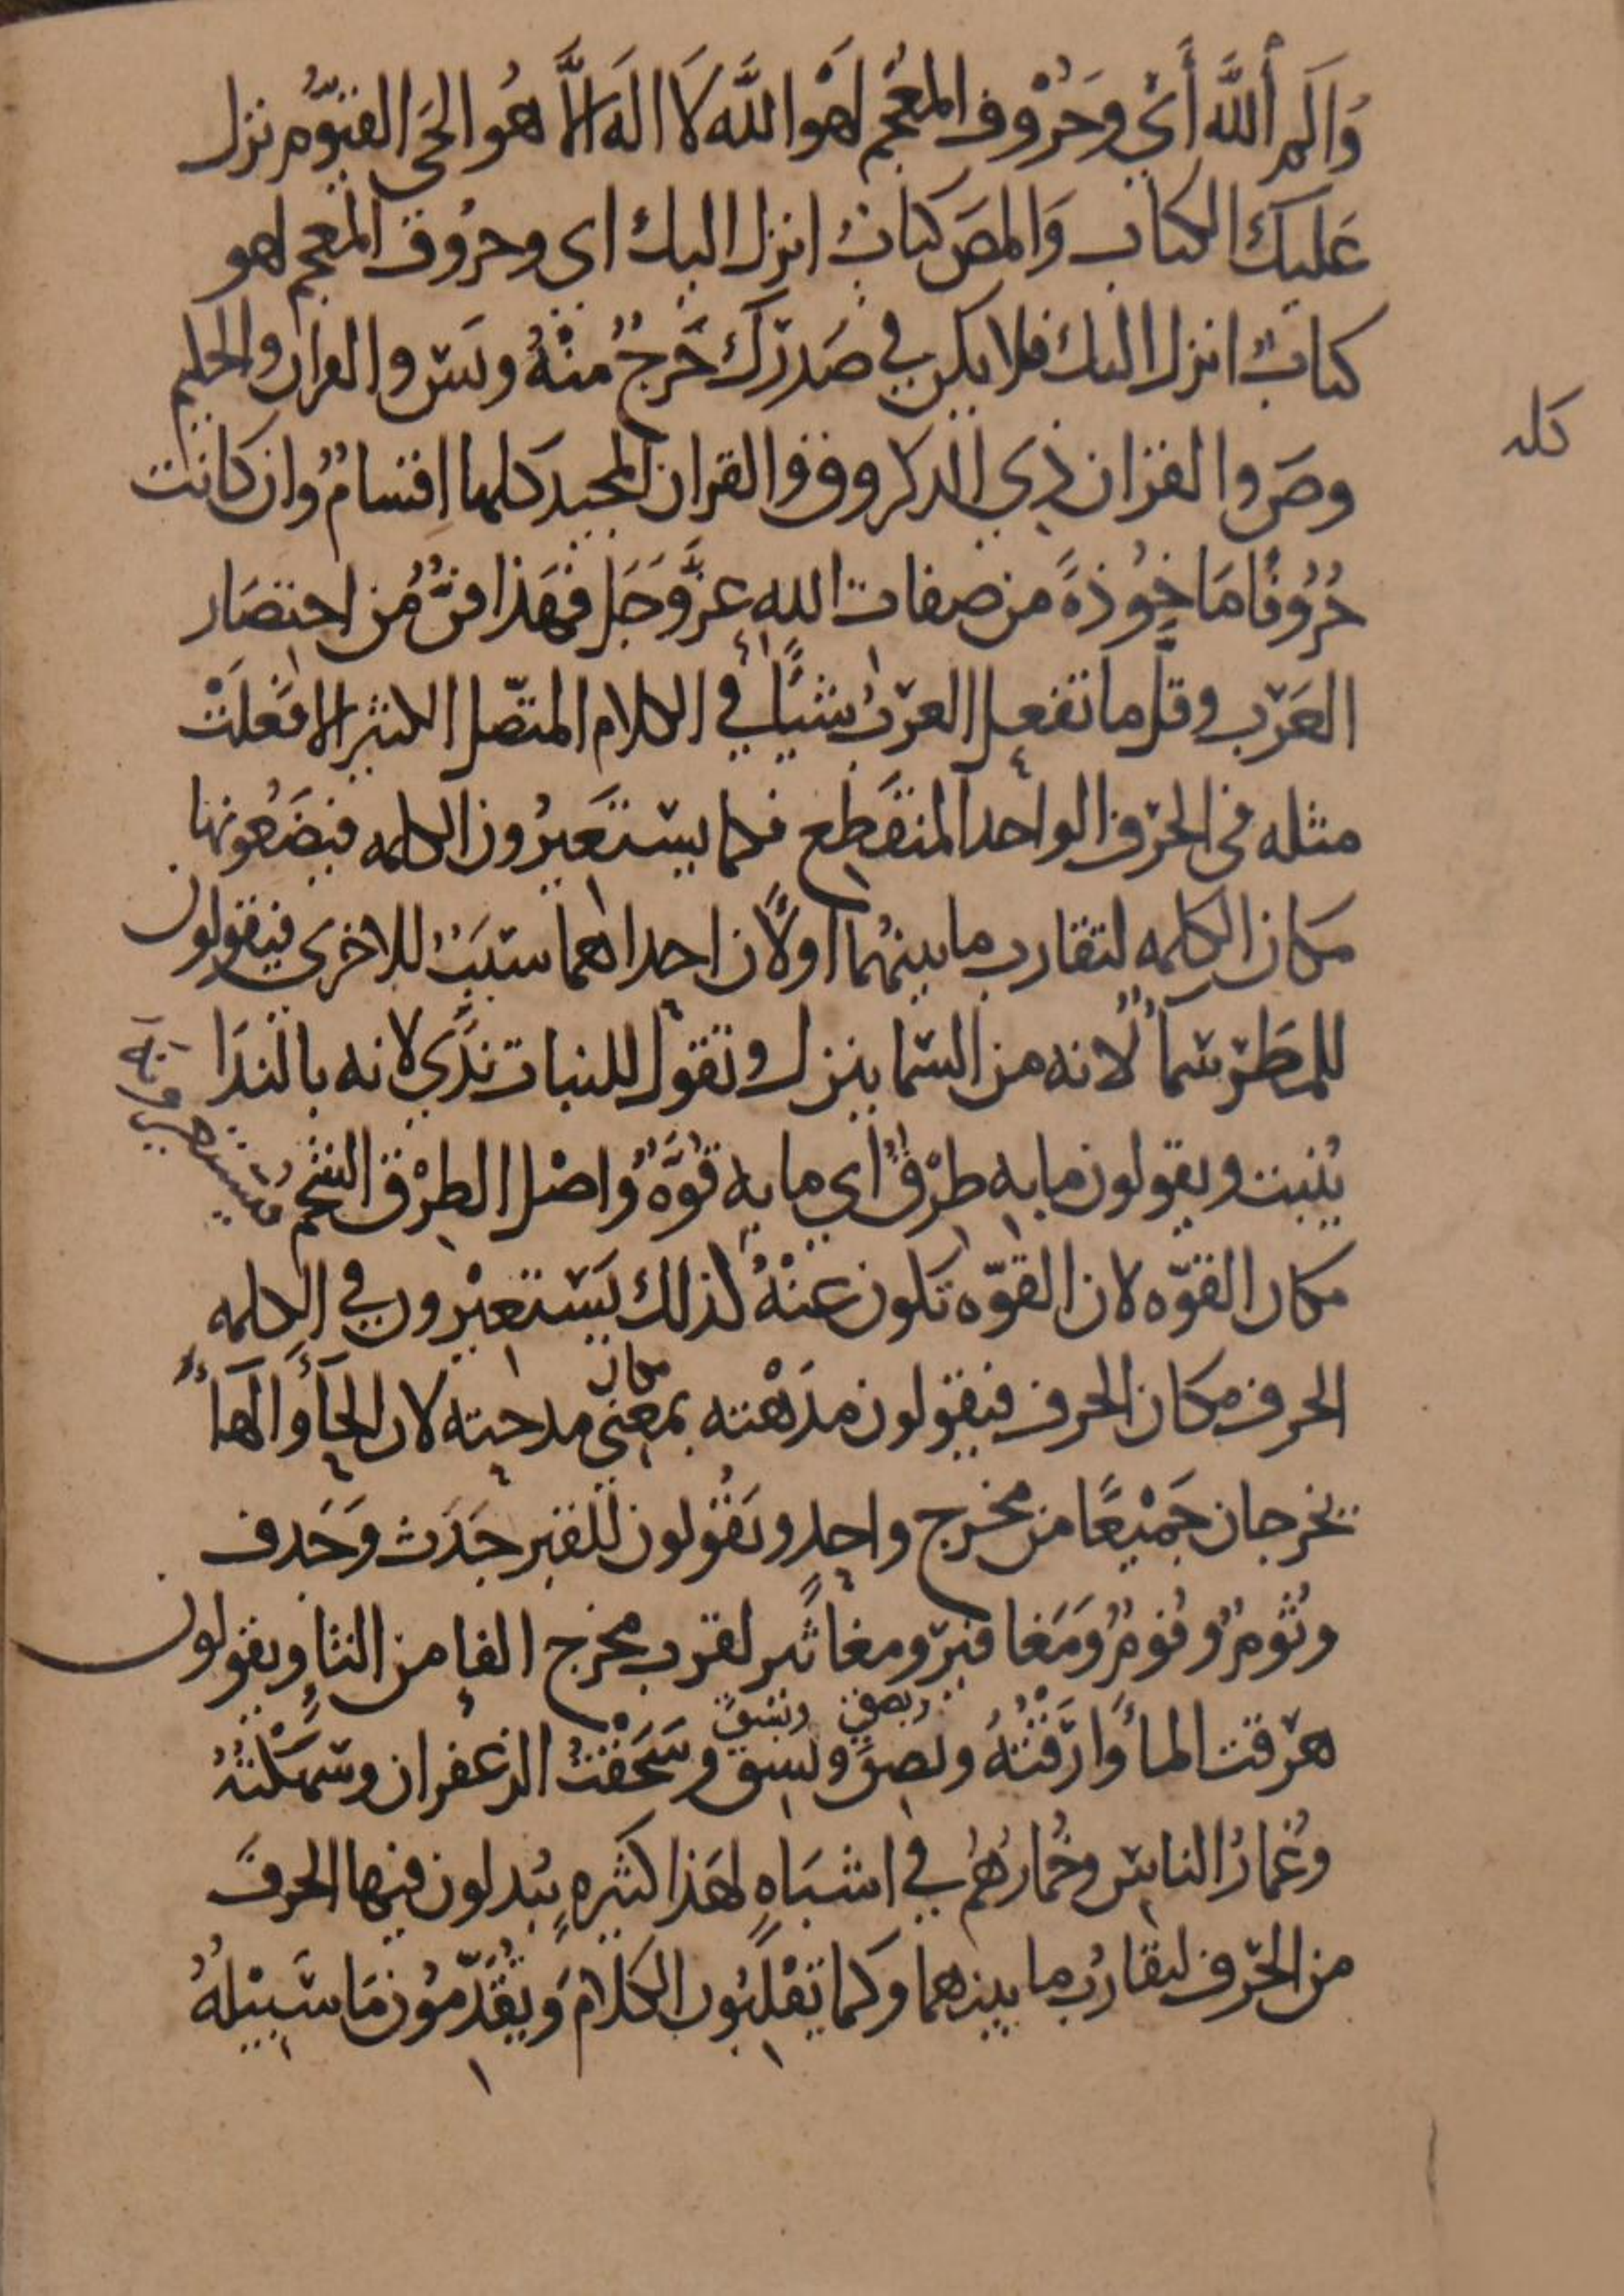 وَالم اللَّه أَي وحُرُوف المعْجم لَهْوَ اللَّه لَا اله الاَّ هُو الحَي القيّوُم نزل
عَليكَ الكتاب وَالمصَ كتابٌ انزل اليك اى وحرُوف المعجم لهو
كتابٌ انزل اليك فلا يكن في صَدرك حَرجٌ منْهُ ويسَ والقران الحكيم
وصَ والقران ذي الذكر وق والقران المجيد كلها اقسامٌ وان كانت
كله
حُرُوفًا مَاخوُذةً من صفات الله عزَّوَجَل فهَذا فنٌّ من اختصَار
العَرَب وقلّ ما تفعل العرَبُ شيًا في الكلام المتصّل الكثير الا فعَلَتْ
مثله فى الحرف الواحد المنقَطع فكما يستَعيرُون الكلمه فيضَعُونها
مكان الكلمه لتقارب ما بينهُما اولًان احداهما سبَبٌ للاخرى فيقولون
للمطَر سَمآٌ لانه من السّما ينزل وتقول للنبات ندًي لانه بالندَا
ينبت ويقولون ما به طرْقٌ اي ما به قوَّهٌ واصْل الطرْق الشحم فيستعيرونه
مكان القوّه لان القوّه تكون عنْهُ كذلك يَسْتعيْرون في الكلمه
الحرف مكان الحرف فيقولون مدَهْته بمعني مكان مدحته لان الحَآ والهَآ
يخرجان جَميْعًا من مخرج واحدٍ ويَقُولون للقبر جَدَث وَجَدف
وثُومٌ وفُومٌ ومَغافيَر ومغاثَير لقرب مخرج الفا من الثا ويقولون
هرَقت المآ وَارَقْتُهُ ولصق ولسق وبصق وبسق وسَحَقْتُ الزعفران وسَهَكْتُهُ
وغُمارُ الناسَ وخُمارُهُم في اشبَاهٍ لهَذا كثيرهٍ يبُدلون فيها الحرفَ
من الحَرف لتقارُب ما بينهما وكما يَقْلبُون الكلامَ ويُقدّموُن مَا سَبيْلهُ